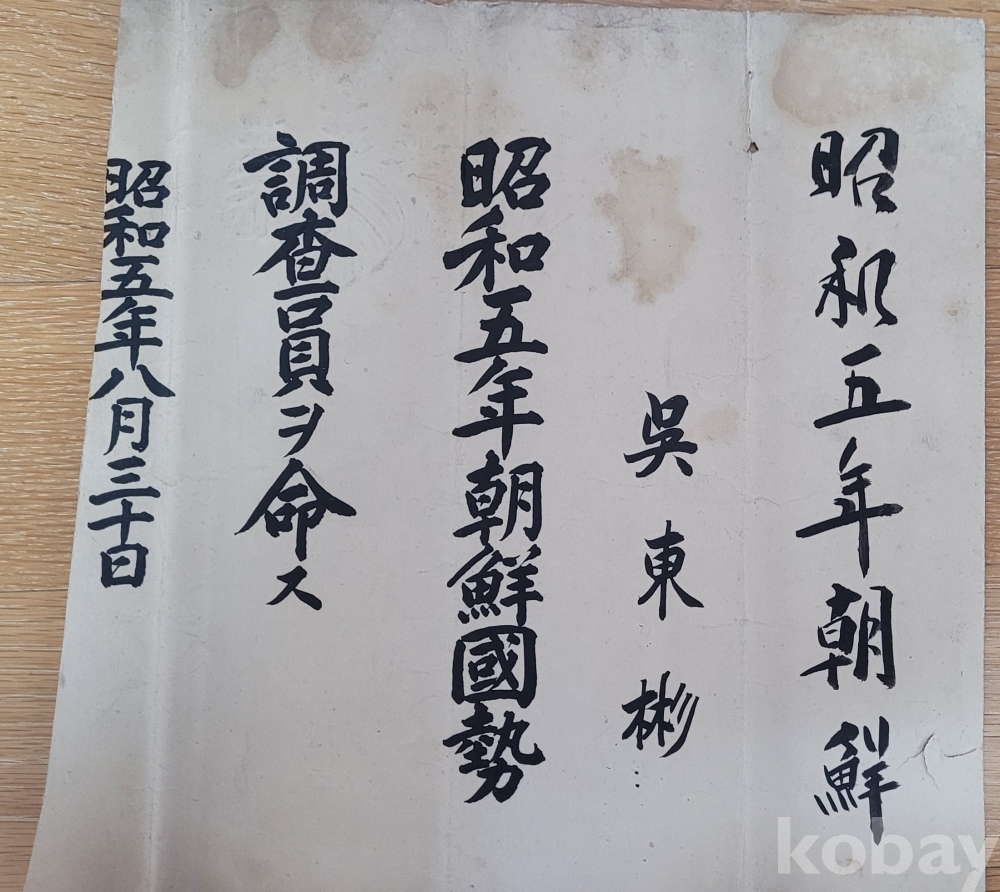 昭和五年朝鮮
吳東彬
昭和五年朝鮮國勢
調査員ヲ命ス
昭和五年八月三十日
kobay